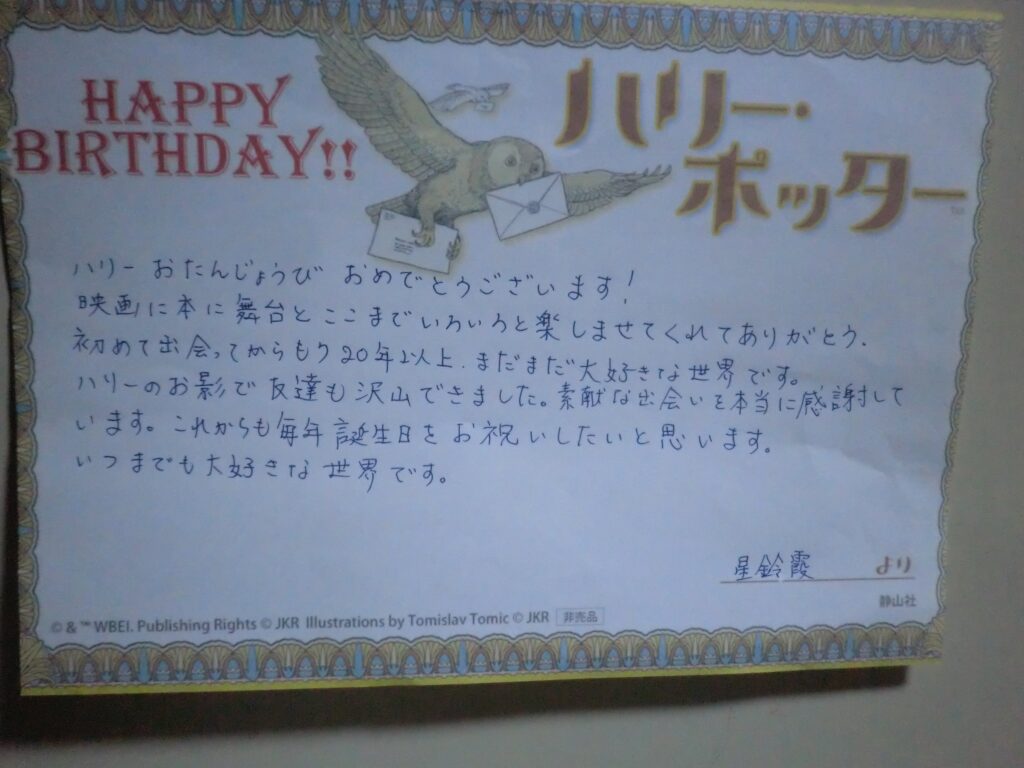 HAPPY
BIRTHDAY!!
ハリー・
ポッター
ハリー おたんじょうび おめでとうございます!
映画に本に舞台とここまでいろいろと楽しませてくれてありがとう.
初めて出会ってからもう20年以上.まだまだ大好きな世界です。
ハリーのお影で友達も沢山できました。素敵な出会いを本当に感謝して
います。これからも毎年誕生日をお祝いしたいと思います。
いつまでも大好きな世界です。
星鈴霞 より
静山社
© & ™ WBEI. Publishing Rights © JKR Illustrations by Tomislav Tomic © JKR 非売品